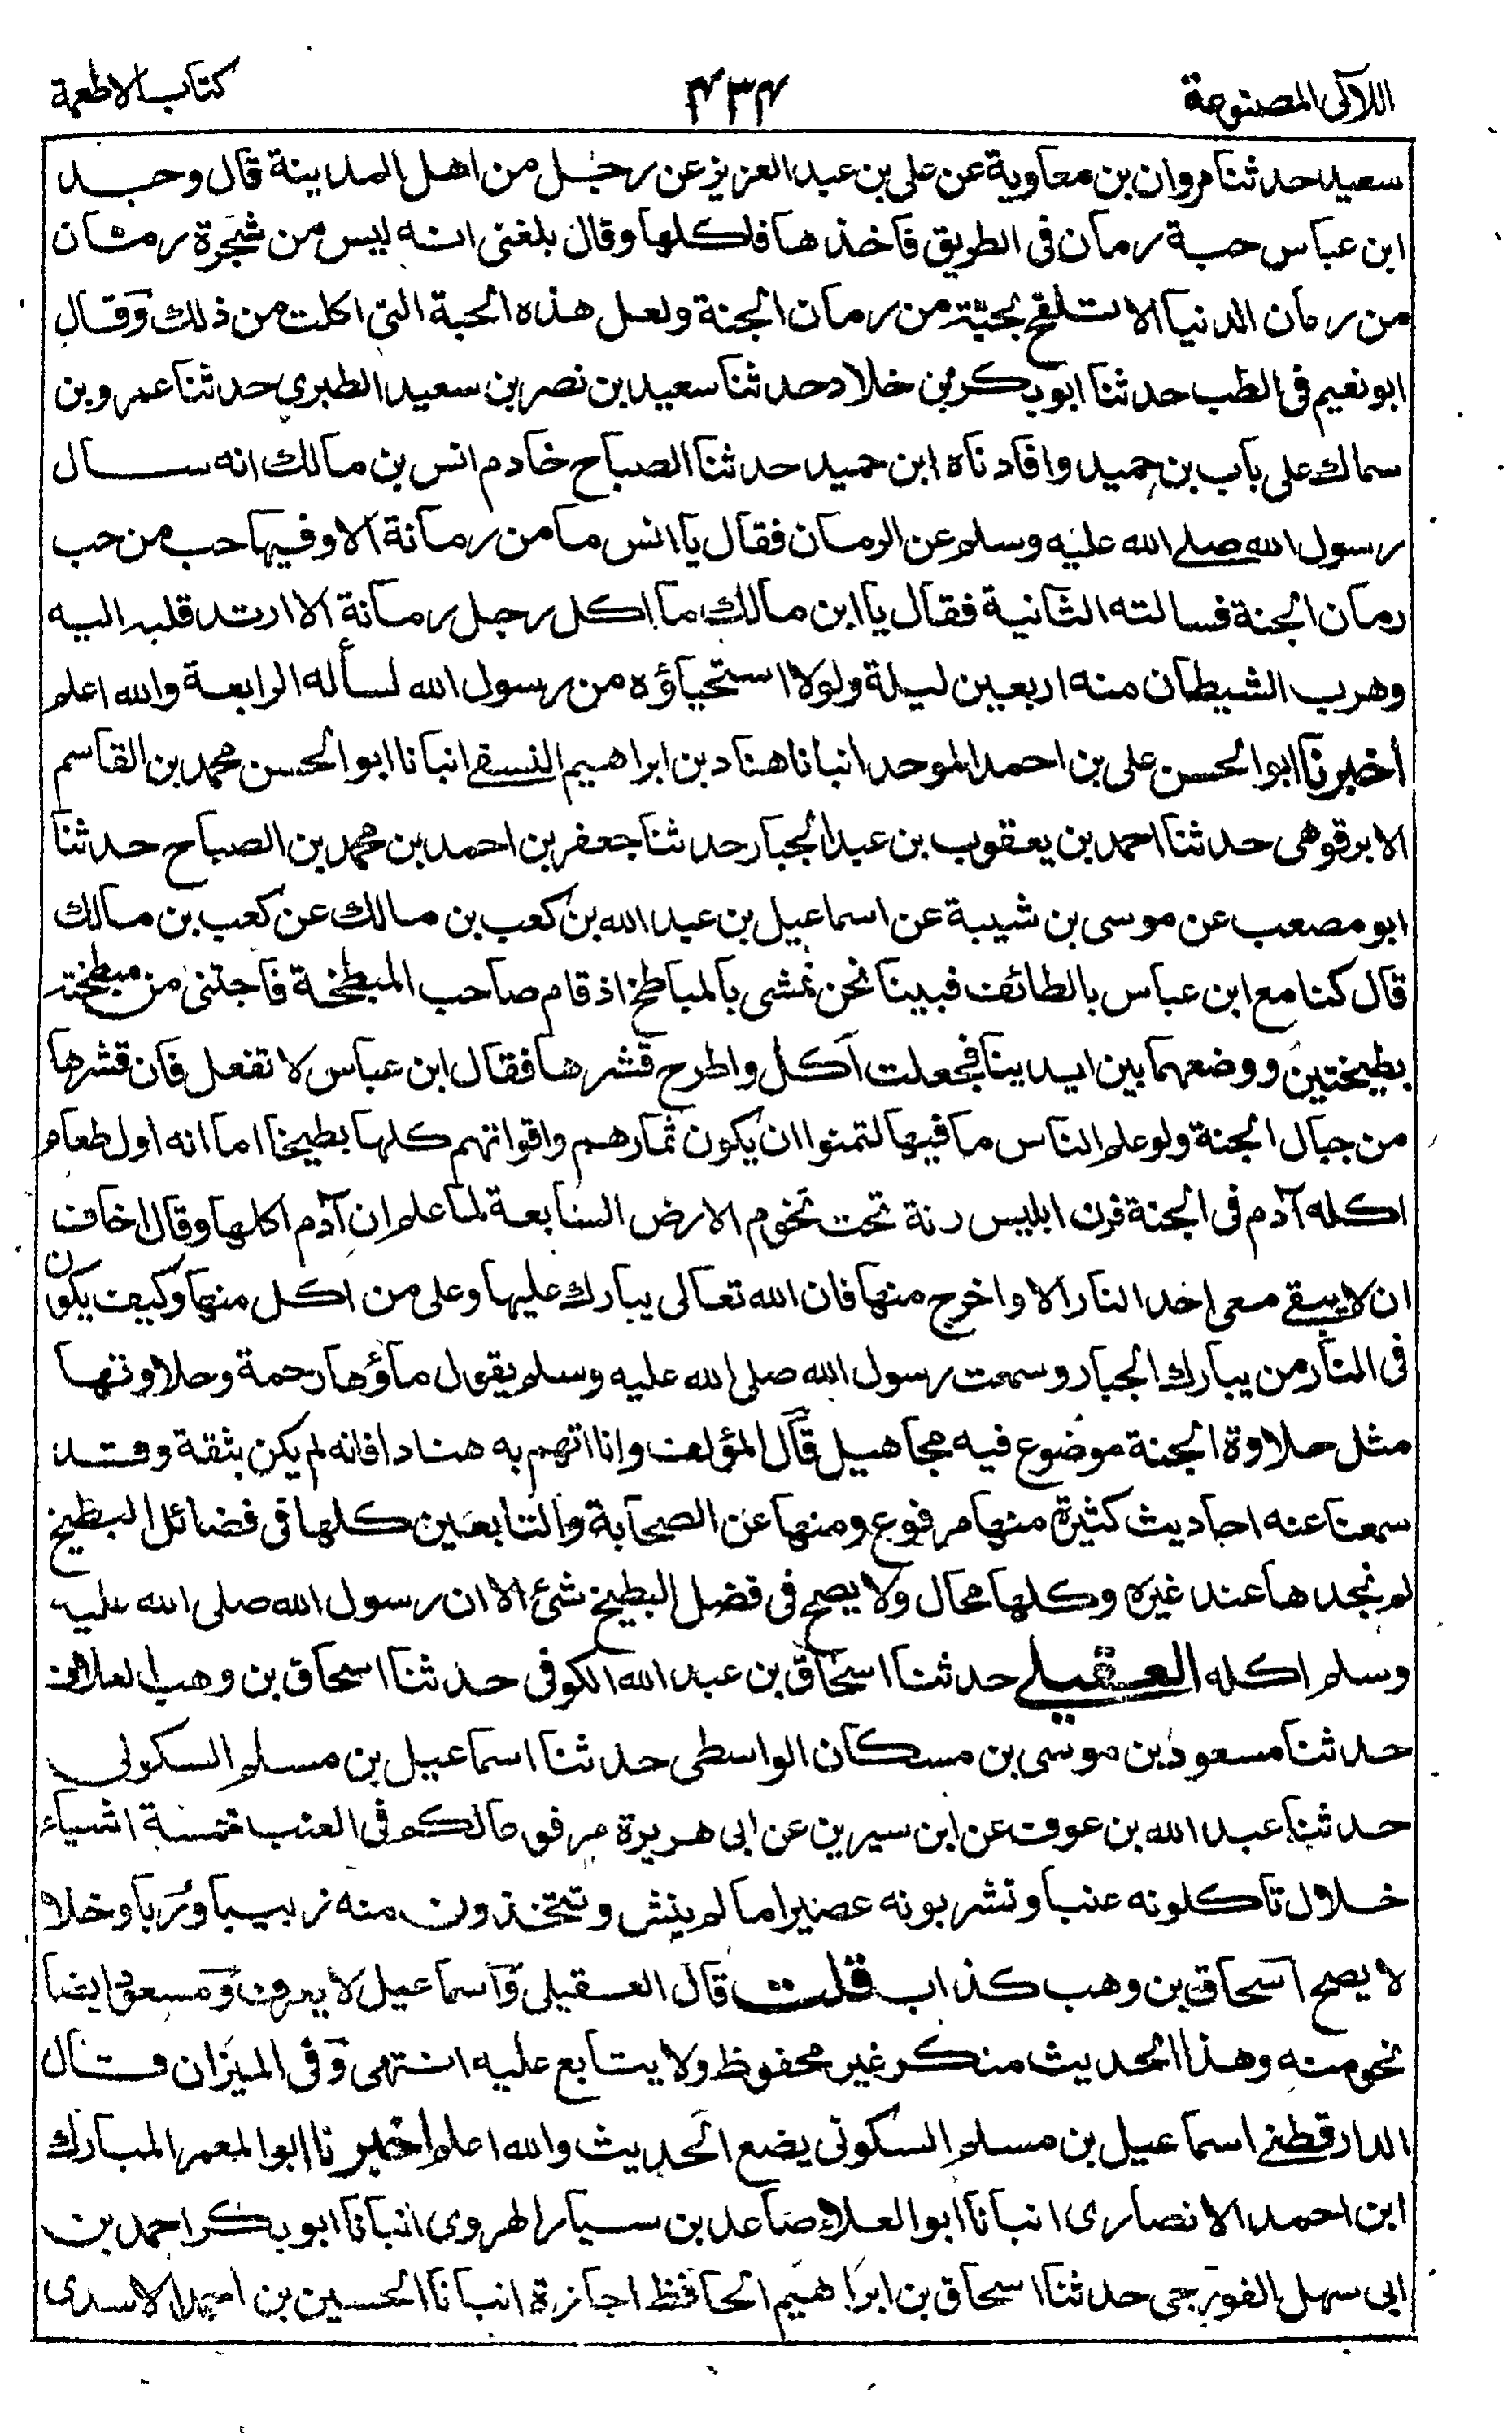 اللآلى المصنوعة ٤٣٤ كتاب الاطعمة
سعيد حدثنا مروان بن معاوية عن على بن عبد العزيز عن رجل من اهل المدينة قال وجد
ابن عباس حبة رمان فى الطريق فاخذها فاكلها وقال بلغنى انه ليس من شجرة رمان
من رمان الدنيا الا تلقح بحبّة من رمان الجنة ولعل هذه الحبة التى اكلت من ذلك وقال
ابو نعيم فى الطب حدثنا ابو بكر بن خلاد حدثنا سعيد بن نصر بن سعيد الطبري حدثنا عمرو بن
سماك على باب بن حميد وافادناه ابن حميد حدثنا الصباح خادم انس بن مالك انه سال
رسول الله صلى الله عليه وسلم عن الرمان فقال يا انس ما من رمانة الا وفيها حب من حب
رمان الجنة فسالته الثانية فقال يا ابن مالك ما اكل رجل رمانة الا ارتد قلبه اليه
وهرب الشيطان منه اربعين ليلة ولولا استحياؤه من رسول الله لسأله الرابعة والله اعلم
أخبرنا ابو الحسن على بن احمد الموحد أنبانا هناد بن ابراهيم النسفى انبانا ابو الحسن محمد بن القاسم
الابرقوهى حدثنا احمد بن يعقوب بن عبد الجبار حدثنا جعفر بن احمد بن محمد بن الصباح حدثنا
ابو مصعب عن موسى بن شيبة عن اسماعيل بن عبد الله بن كعب بن مالك عن كعب بن مالك
قال كنا مع ابن عباس بالطائف فبينا نحن نمشى بالمباطخ اذ قام صاحب المبطخة فاجتنى من مبطخته
بطيختين ووضعهما بين ايدينا فجعلت آكل واطرح قشرها فقال ابن عباس لا تفعل فان قشرها
من جبال الجنة ولو علم الناس ما فيها لتمنوا ان يكون ثمارهم واقواتهم كلها بطيخا اما انه اول طعام
اكله آدم فى الجنة فرن ابليس رنة تحت تخوم الارض السابعة لما علم ان آدم اكلها وقال اخاف
ان لا يبقى معى احد النار الا واخرج منها فان الله تعالى يبارك عليها وعلى من اكل منها وكيف يكون
فى النار من يبارك الجبار وسمعت رسول الله صلى الله عليه وسلم يقول ماؤها رحمة وحلاوتها
مثل حلاوة الجنة موضوع فيه مجاهيل قال المؤلف وانا اتهم به هنادا فانه لم يكن بثقة وقد
سمعنا عنه احاديث كثيرة منها مرفوع ومنها عن الصحابة والتابعين كلها فى فضائل البطيخ
لم نجدها عند غيره وكلها محال ولا يصح فى فضل البطيخ شئ الا ان رسول الله صلى الله عليه
وسلم اكله العقيلى حدثنا اسحاق بن عبد الله الكوفى حدثنا اسحاق بن وهب العلاف
حدثنا مسعود بن موسى بن مسكان الواسطى حدثنا اسماعيل بن مسلم السكونى
حدثنا عبد الله بن عوف عن ابن سيرين عن ابى هريرة مرفوعا لكم فى العنب خمسة اشياء
خلال تاكلونه عنبا وتشربونه عصيرا ما لم ينش وتتخذون منه زبيبا ورُبا وخلا
لا يصح اسحاق بن وهب كذاب قلت قال العقيلى واسماعيل لا يعرف ومسعود ايضا
نحو منه وهذا الحديث منكر غير محفوظ ولا يتابع عليه انتهى وفى الميزان قال
الدارقطنى اسماعيل بن مسلم السكونى يضع الحديث والله اعلم اخبرنا ابو المعمر المبارك
ابن احمد الانصارى انبانا ابو العلاء صاعد بن سيار الهروى انبانا ابو بكر احمد بن
ابى سهل الفورجى حدثنا اسحاق بن ابراهيم الحافظ اجازة انبانا الحسين بن احمد الاسدى